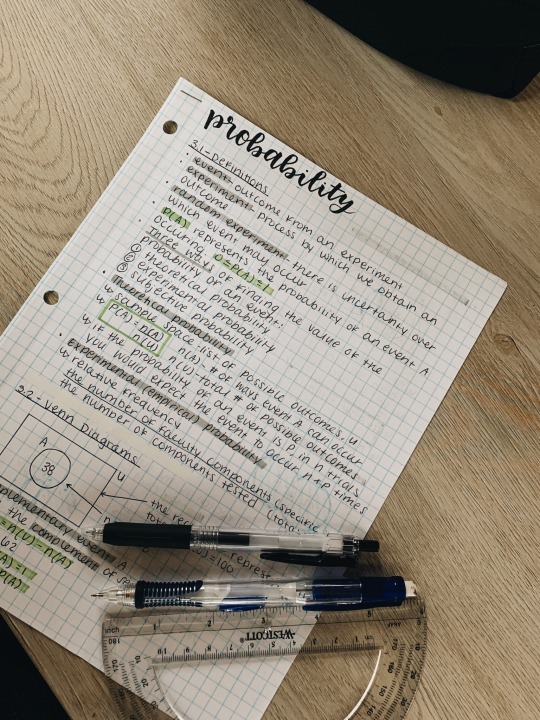 probability
3.1 - Definitions
• event - outcome from an experiment
• experiment - process by which we obtain an
outcome
• random experiment - there is uncertainty over
which event may occur
• P(A) represents the probability of an event A
occuring 0≤P(A)≤1
• Three ways of finding the value of the
probability of an event:
① theoretical probability
② experimental probability
③ subjective probability
• Theoretical probability
↳ sample space list of possible outcomes, u
↳ P(A) = n(A)
n(u)
n(A) - # of ways event A can occur
n(u) - total # of possible outcomes
↳ if the probability of an event is P, in n trials
you would expect the event to occur n×P times
• experimental (empirical) probability
↳ relative frequency
the number of faulty components (specific
the number of components tested (total
3.2 - Venn Diagrams
A
u
38
the rec
represe
=100
complementary event A
the complement of sa
= n(u) - n(A)
62
inch
1
2
3
4
5
WESTCOTT
180
170